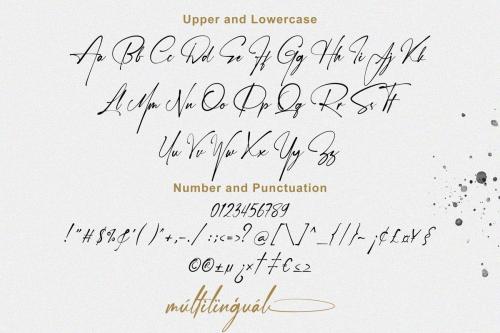 Upper and Lowercase
Aa Bb Cc Dd Ee Ff Gg Hh Ii Jj Kk
Ll Mm Nn Oo Pp Qq Rr Ss Tt
Uu Vv Ww Xx Yy Zz
Number and Punctuation
0123456789
!"#$%&'()*+,-./:;<=>?@[\]^_{|}~¡¢£¤¥§
©®±µ¿×†‡€≤≥
múltilingual